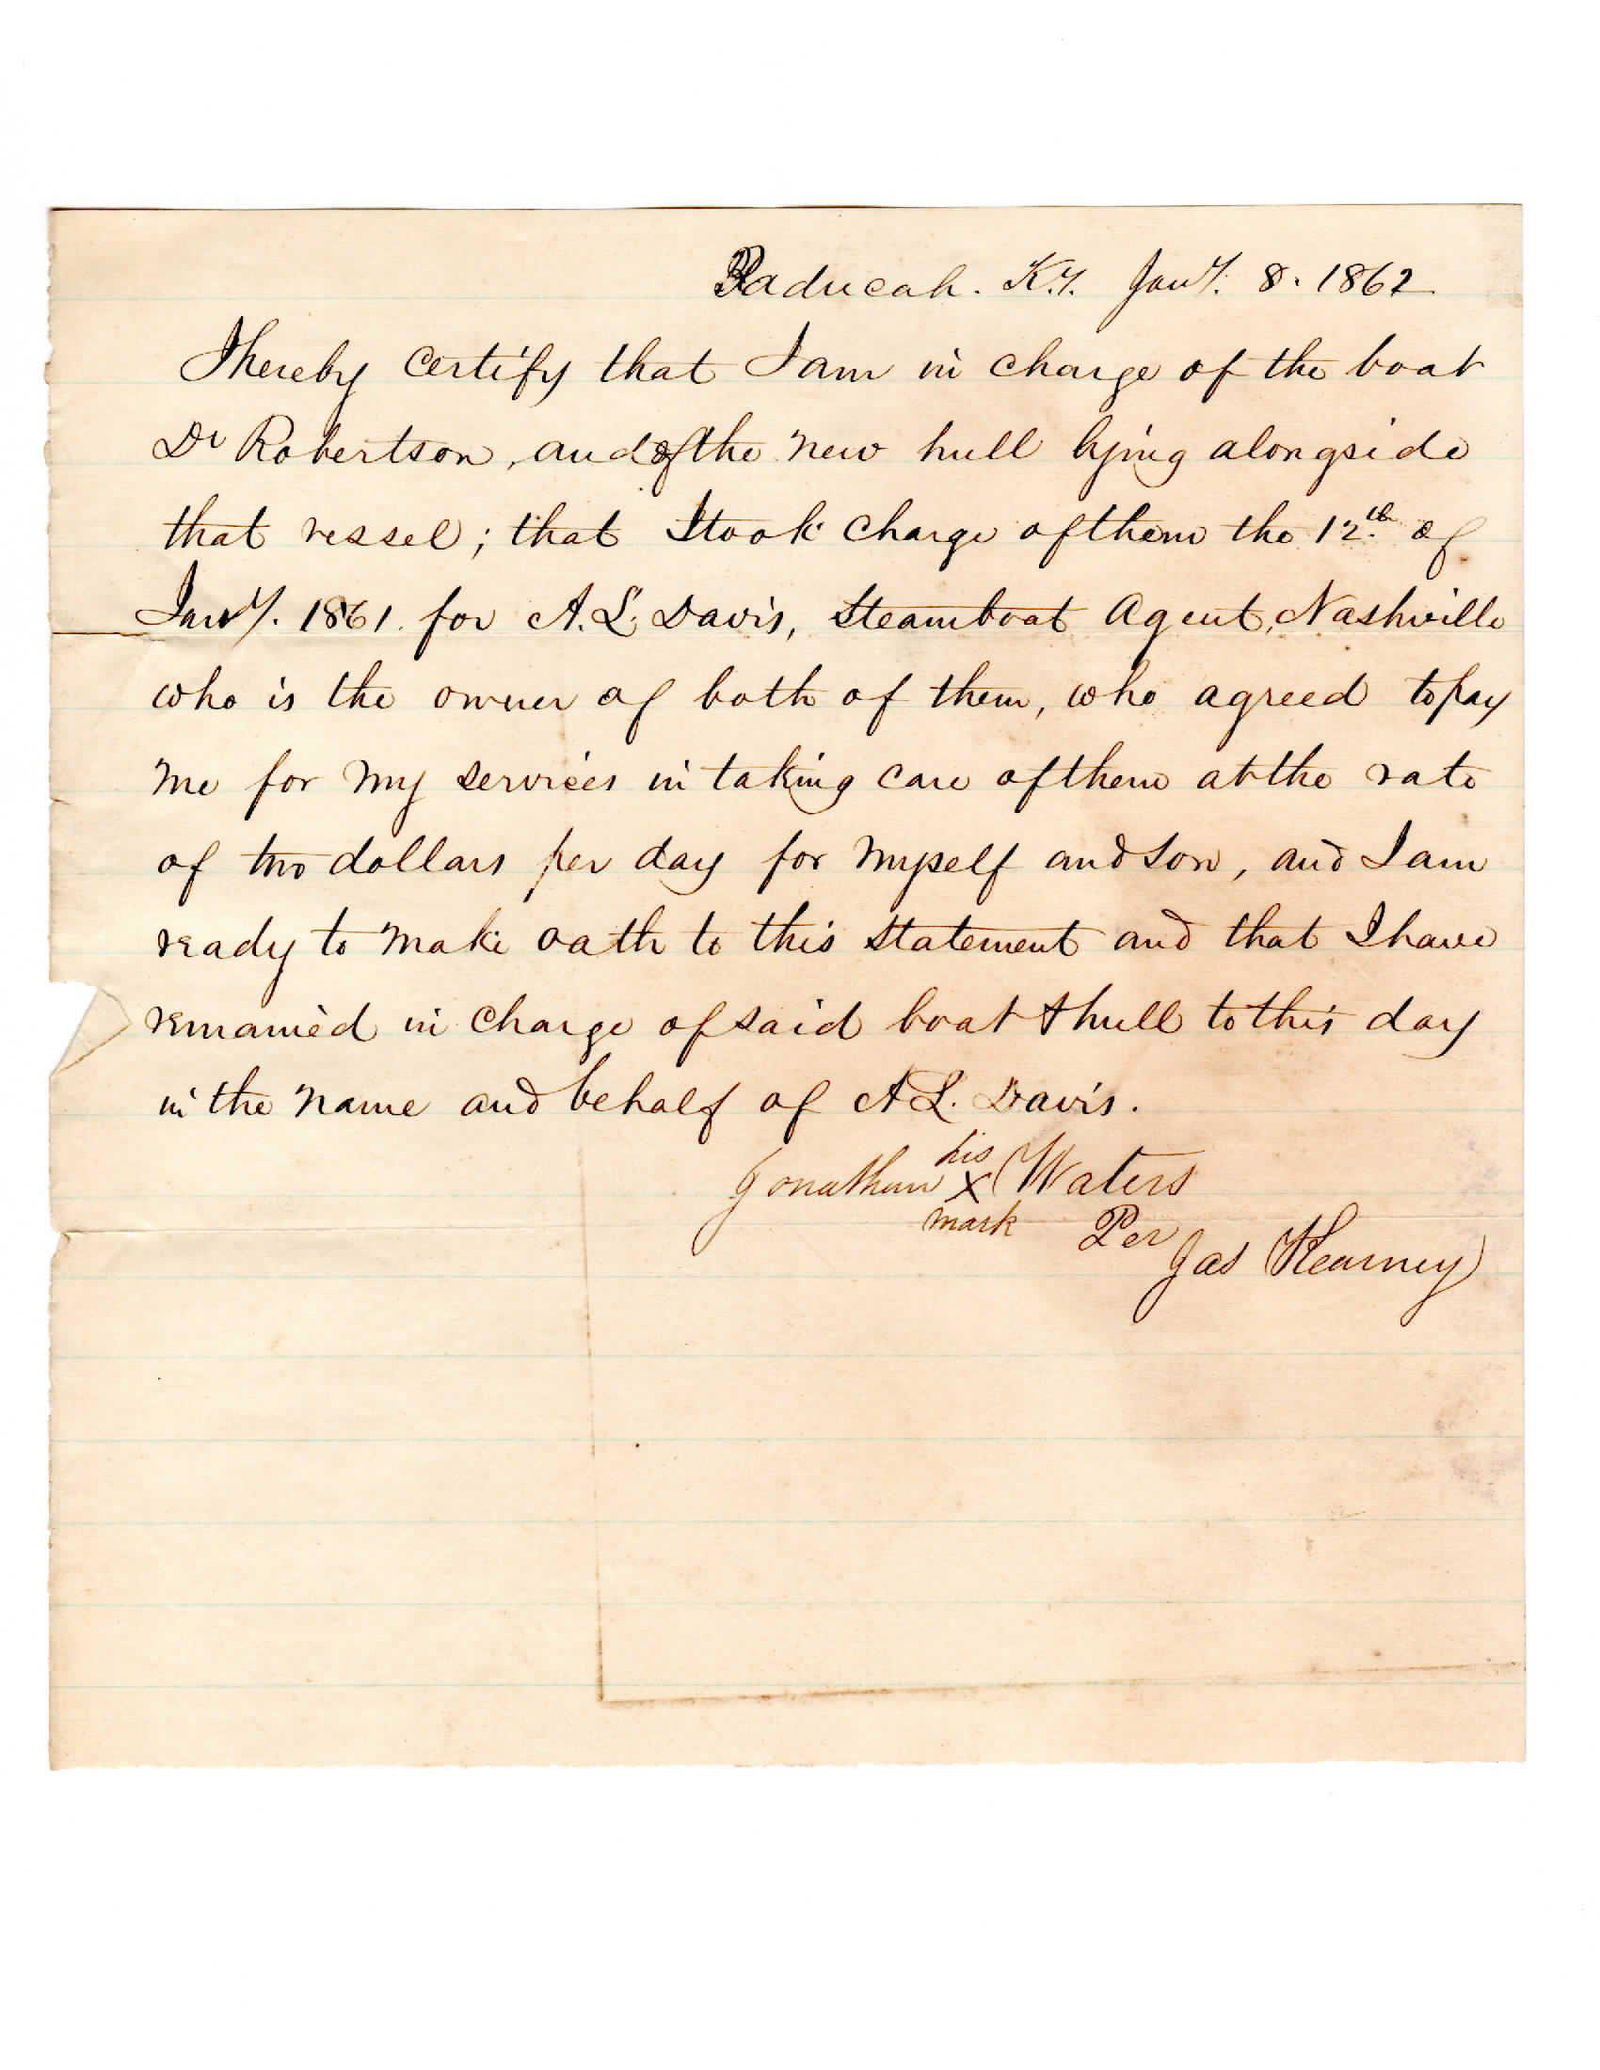 Paducah. K.Y. Jany. 8. 1862
I hereby certify that I am in charge of the boat
Dr Robertson, and of the new hull lying alongside
that vessel; that I took charge of them the 12th. of
Jany. 1861. for A. L. Davis, Steamboat Agent, Nashville
who is the owner of both of them, who agreed to pay
me for my services in taking care of them at the rate
of two dollars per day for myself and son, and I am
ready to make oath to this statement and that I have
remained in charge of said boat & hull to this day
in the name and behalf of A L. Davis.
his
Jonathan X Waters
mark Per
Jas Kearney